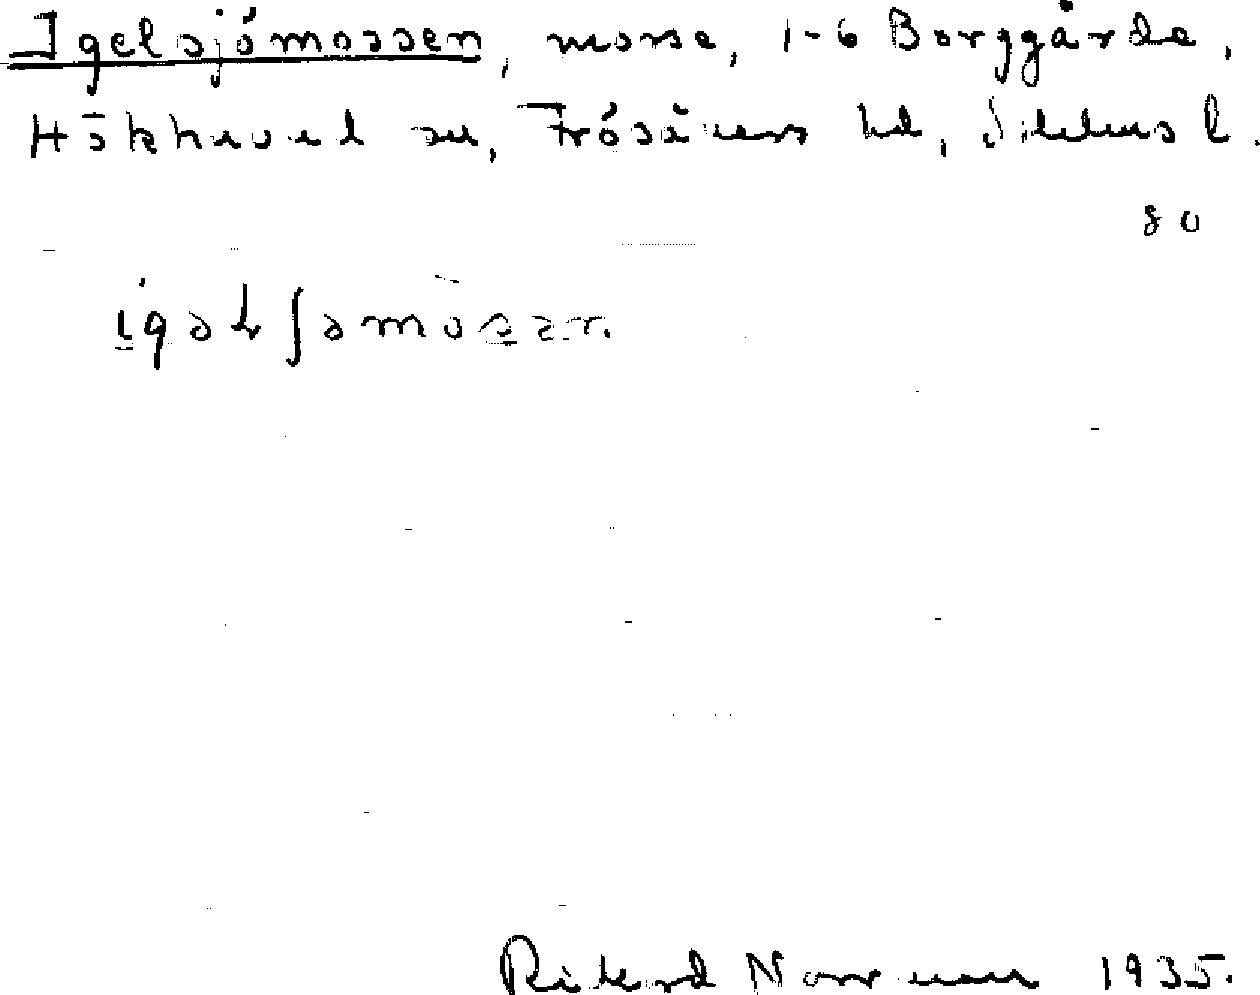 Igelsjömossen, mosse, 1-6 Borggårde,
Hökhuvud sn, Frösåkers hd, Sthlms l.
80
Rikard Norrman 1935.